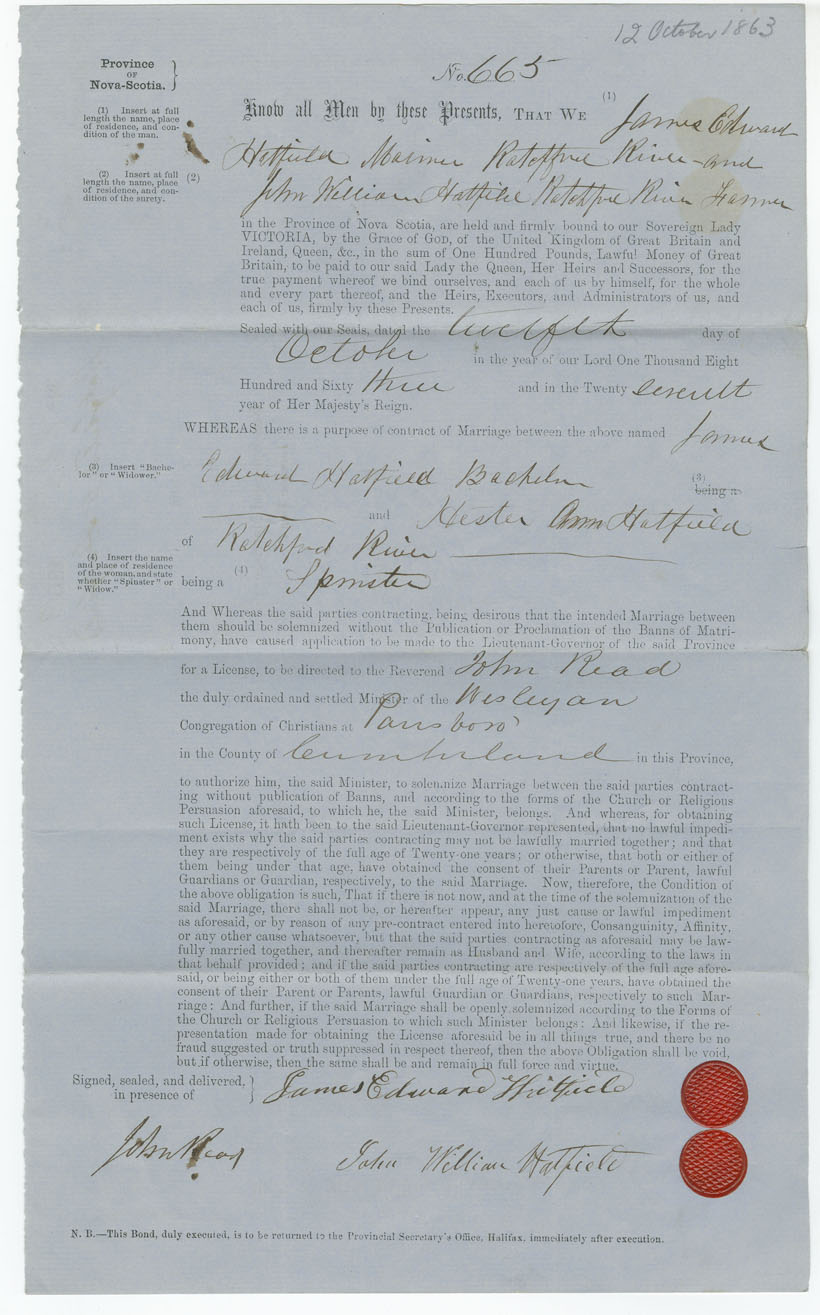 12 October 1863
Province
OF
Nova-Scotia.
No. 665
(1) Insert at full
length the name, place
of residence, and con-
dition of the man.
Know all Men by these Presents, THAT WE (1) James Edward
Hatfield Mariner Ratchford River and
(2) Insert at full
length the name, place
of residence, and con-
dition of the surety.
(2) John William Hatfield Ratchford River Farmer
in the Province of Nova Scotia, are held and firmly bound to our Sovereign Lady
VICTORIA, by the Grace of GOD, of the United Kingdom of Great Britain and
Ireland, Queen, &c., in the sum of One Hundred Pounds, Lawful Money of Great
Britain, to be paid to our said Lady the Queen, Her Heirs and Successors, for the
true payment whereof we bind ourselves, and each of us by himself, for the whole
and every part thereof, and the Heirs, Executors, and Administrators of us, and
each of us, firmly by these Presents.
Sealed with our Seals, dated the twelfth day of
October in the year of our Lord One Thousand Eight
Hundred and Sixty three and in the Twenty
year of Her Majesty's Reign.
WHEREAS there is a purpose of contract of Marriage between the above named James
(3) Insert "Bache-
lor" or "Widower."
Edward Hatfield Bachelor (3)
being a
and Hester Ann Hatfield
of Ratchford River
(4) Insert the name
and place of residence
of the woman, and state
whether "Spinster" or
"Widow."
being a (4) Spinster
And Whereas the said parties contracting, being desirous that the intended Marriage between
them should be solemnized without the Publication or Proclamation of the Banns of Matri-
mony, have caused application to be made to the Lieutenant-Governor of the said Province
for a License, to be directed to the Reverend John Read
the duly ordained and settled Minister of the Wesleyan
Congregation of Christians at Parrsboro
in the County of Cumberland in this Province,
to authorize him, the said Minister, to solemnize Marriage between the said parties contract-
ing without publication of Banns, and according to the forms of the Church or Religious
Persuasion aforesaid, to which he, the said Minister, belongs. And whereas, for obtaining
such License, it hath been to the said Lieutenant-Governor represented, that no lawful impedi-
ment exists why the said parties contracting may not be lawfully married together; and that
they are respectively of the full age of Twenty-one years; or otherwise, that both or either of
them being under that age, have obtained the consent of their Parents or Parent, lawful
Guardians or Guardian, respectively, to the said Marriage. Now, therefore, the Condition of
the above obligation is such, That if there is not now, and at the time of the solemnization of the
said Marriage, there shall not be, or hereafter appear, any just cause or lawful impediment
as aforesaid, or by reason of any pre-contract entered into heretofore, Consanguinity, Affinity,
or any other cause whatsoever, but that the said parties contracting as aforesaid may be law-
fully married together, and thereafter remain as Husband and Wife, according to the laws in
that behalf provided; and if the said parties contracting are respectively of the full age afore-
said, or being either or both of them under the full age of Twenty-one years, have obtained the
consent of their Parent or Parents, lawful Guardian or Guardians, respectively to such Mar-
riage: And further, if the said Marriage shall be openly solemnized according to the Forms of
the Church or Religious Persuasion to which such Minister belongs: And likewise, if the re-
presentation made for obtaining the License aforesaid be in all things true, and there be no
fraud suggested or truth suppressed in respect thereof, then the above Obligation shall be void,
but if otherwise, then the same shall be and remain in full force and virtue.
Signed, sealed, and delivered,
in presence of
James Edward Hatfield
John Read
John William Hatfield
N. B.—This Bond, duly executed, is to be returned to the Provincial Secretary's Office, Halifax, immediately after execution.